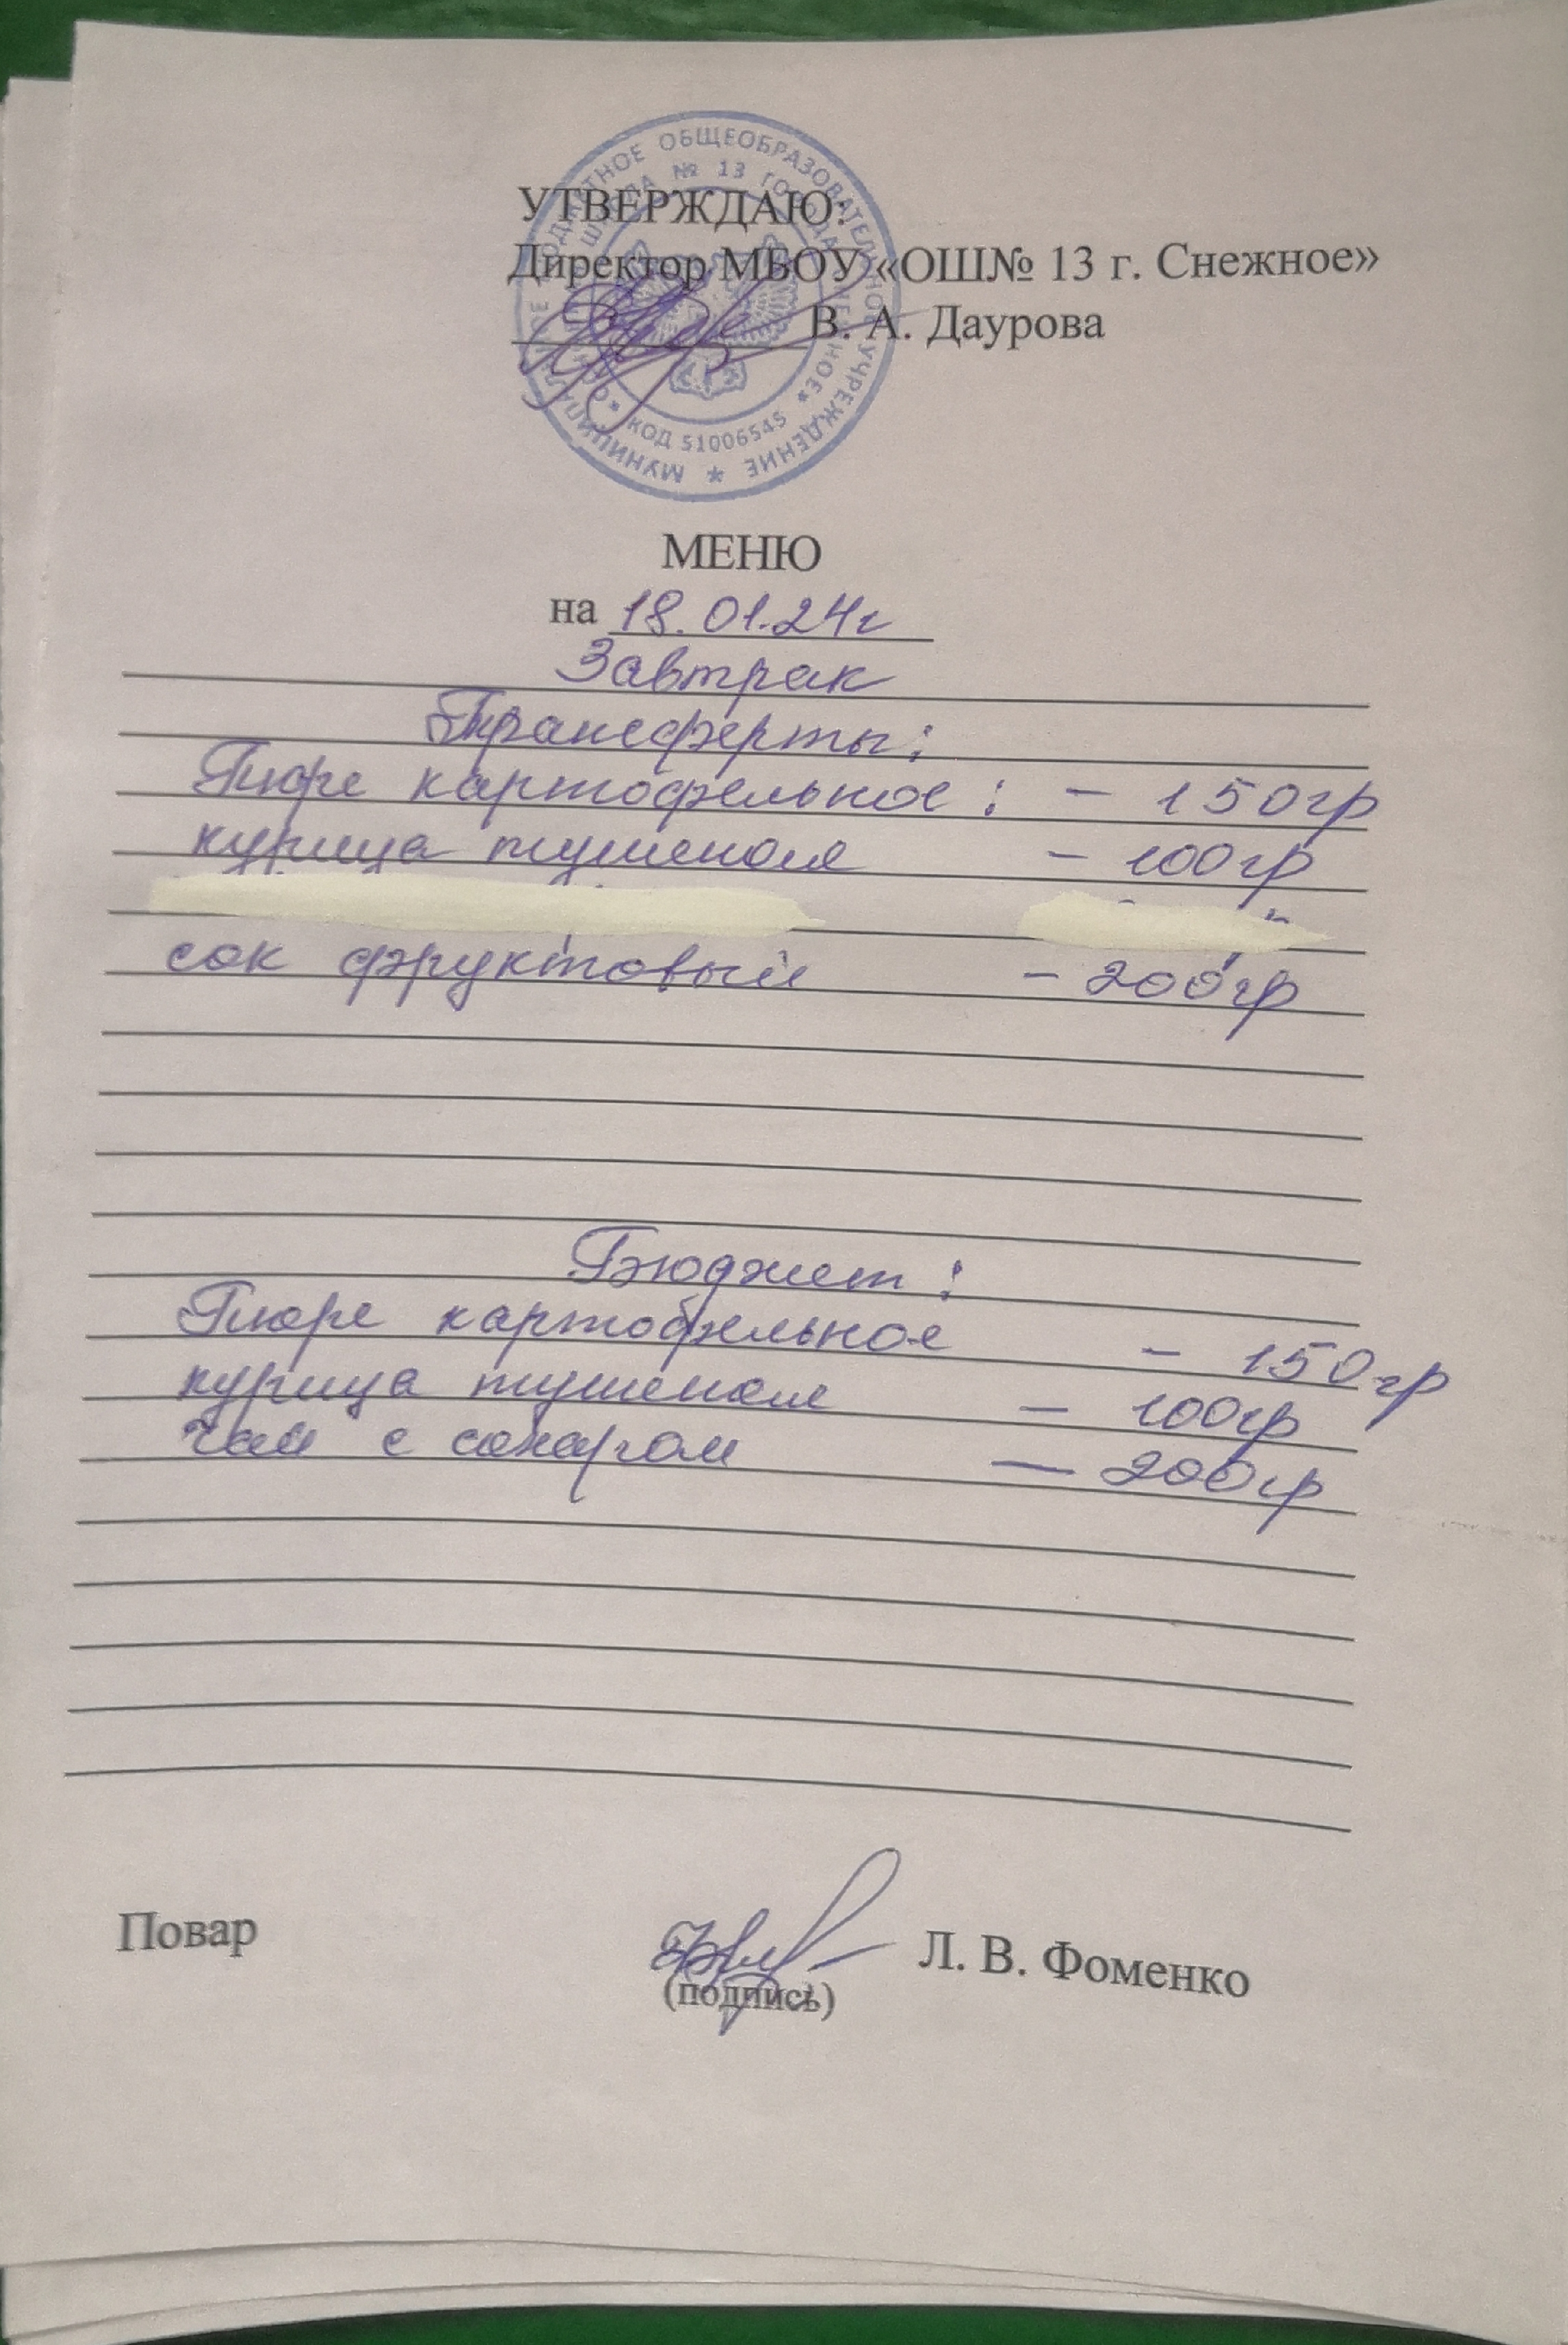 МУНИЦИПАЛЬНОЕ БЮДЖЕТНОЕ ОБЩЕОБРАЗОВАТЕЛЬНОЕ УЧРЕЖДЕНИЕ
ШКОЛА № 13 ГОРОДА СНЕЖНОЕ
КОД 51006545
УТВЕРЖДАЮ:
Директор МБОУ «ОШ№ 13 г. Снежное»
В. А. Даурова
МЕНЮ
на 18.01.24г
Завтрак
Трансферты:
Пюре картофельное: - 150гр
курица тушеная - 100гр
сок фруктовый - 200гр
Бюджет:
Пюре картофельное - 150гр
курица тушеная - 100гр
чай с сахаром - 200гр
Повар
Л. В. Фоменко
(подпись)